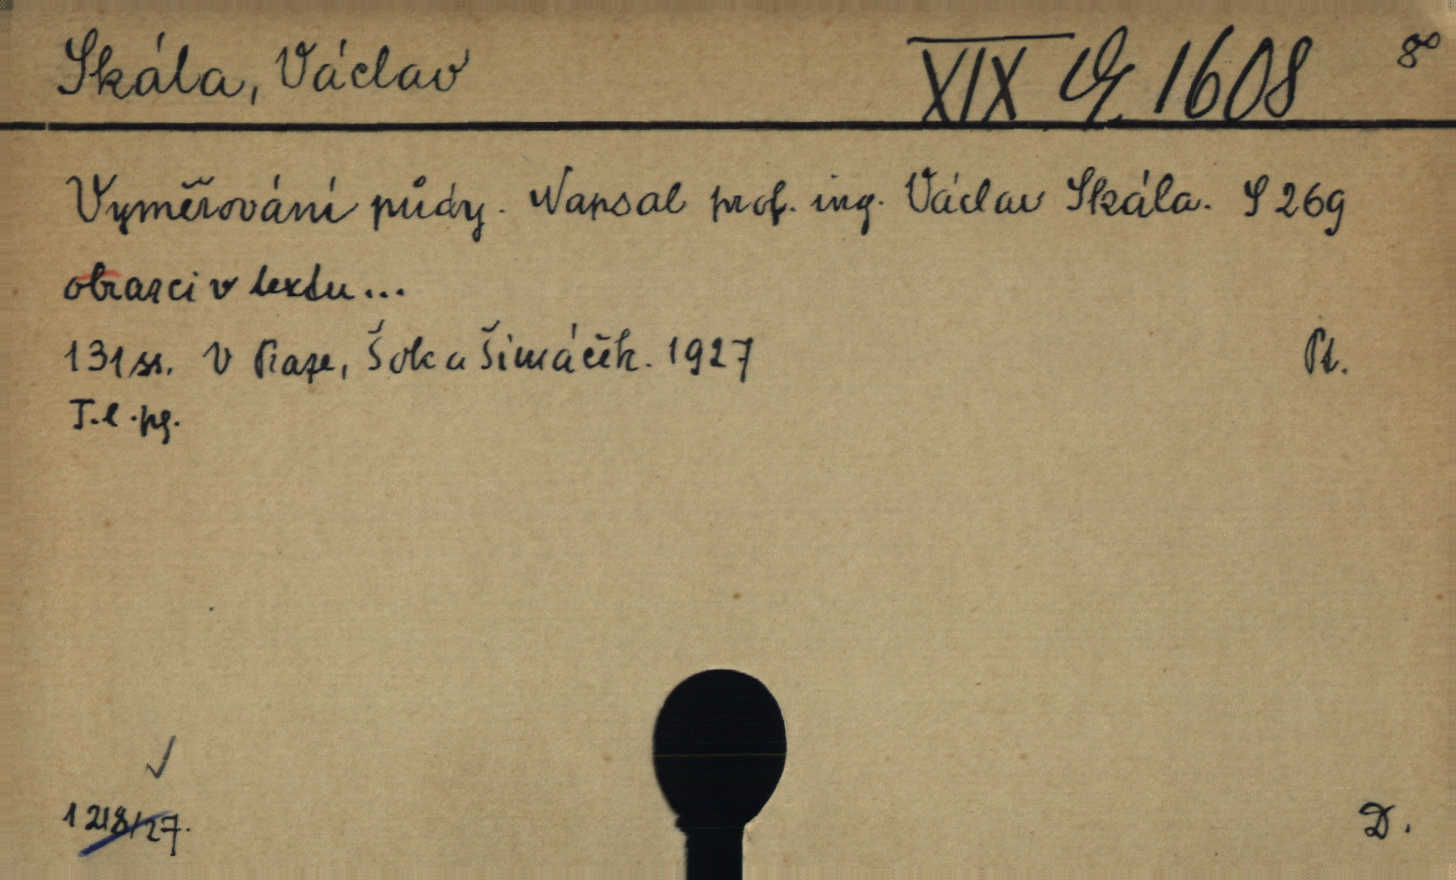 Skála, Václav
XIX G 1608 8°
Vyměřování půdy. Napsal prof. ing. Václav Skála. S 269
obrazci v textu...
131 ss. V Praze, Šolc a Šimáček. 1927 Pt.
T. l. pg.
1218/27.
D.